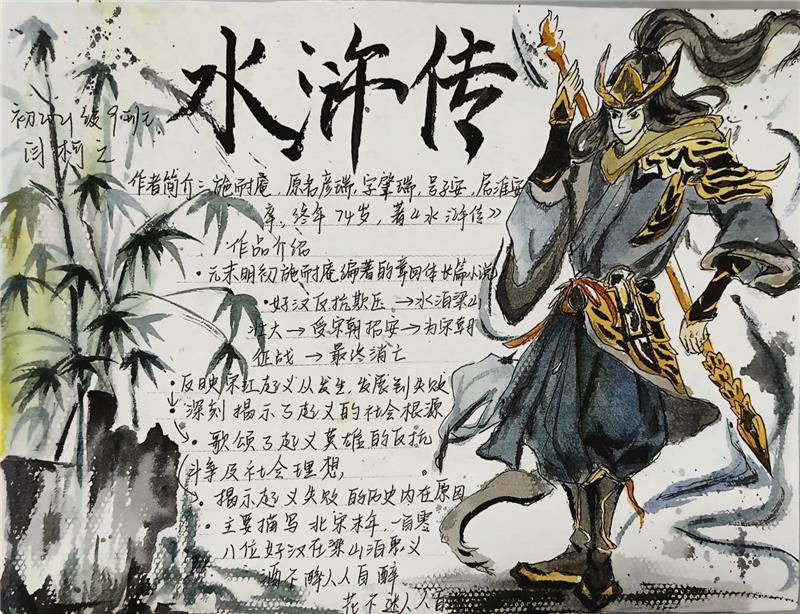 水浒传
初2021级9班
闫柯之
作者简介：施耐庵，原名彦瑞，字肇瑞，号子安，居淮安
卒，终年74岁，著《水浒传》
作品介绍
·元末明初施耐庵编著的章回体长篇小说
·好汉反抗欺压→水泊梁山
壮大→受宋朝招安→为宋朝
征战→最终消亡
·反映宋江起义从发生，发展到失败
·深刻揭示了起义的社会根源
·歌颂了起义英雄的反抗
斗争及社会理想，
·揭示起义失败的历史内在原因
·主要描写北宋末年，一百零
八位好汉在梁山泊聚义
酒不醉人人自醉
花不迷人人自